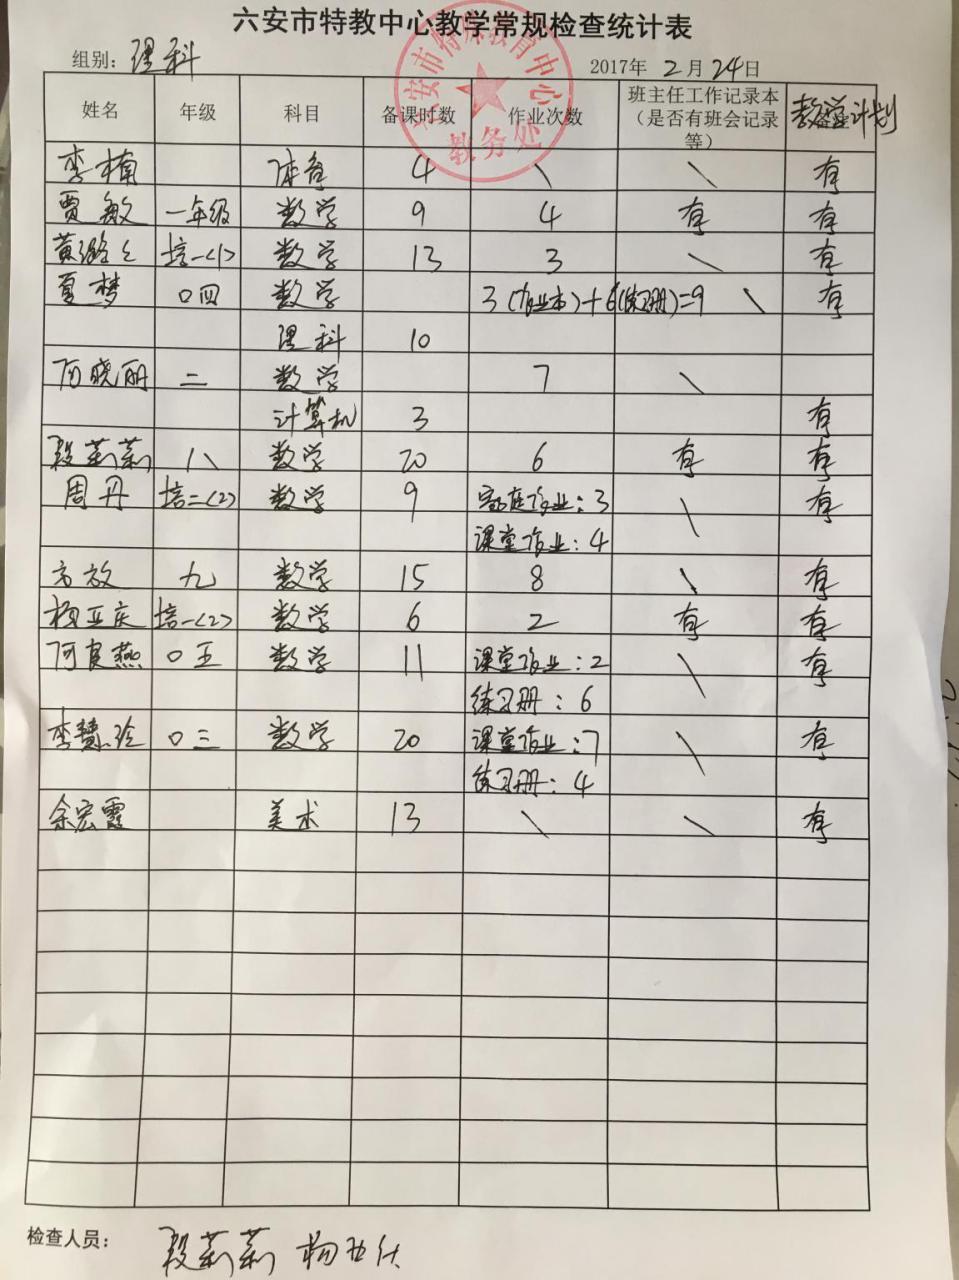 六安市特教中心教学常规检查统计表
组别：理科 2017年 2 月 24 日
姓名 年级 科目 备课时数 作业次数 班主任工作记录本（是否有班会记录等） 教学计划
六安市特殊教育中心
教务处
李楠 体育 4 \ \ 有
贾敏 一年级 数学 9 4 有 有
黄璐璐 培一(1) 数学 13 3 \ 有
夏梦 〇四 数学 3(作业本)+6(练习册)=9 \ 有
理科 10
晓丽 二 数学 7 \
计算机 3 有
段莉莉 八 数学 20 6 有 有
周丹 培二(2) 数学 9 家庭作业：3 \ 有
课堂作业：4
方放 九 数学 15 8 \ 有
杨亚庆 培一(2) 数学 6 2 有 有
阿良燕 〇五 数学 11 课堂作业：2 \ 有
练习册：6
李慧玲 〇三 数学 20 课堂作业：7 \ 有
练习册：4
余宏霞 美术 13 \ \ 有
检查人员： 段莉莉 杨